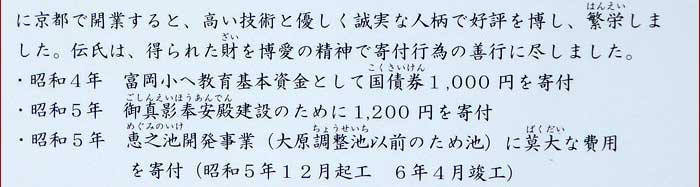 に京都で開業すると、高い技術と優しく誠実な人柄で好評を博し、繁栄しま
した。伝氏は、得られた財を博愛の精神で寄付行為の善行に尽しました。
・昭和4年 富岡小へ教育基本資金として国債券1,000円を寄付
・昭和5年 御真影奉安殿建設のために1,200円を寄付
・昭和5年 恵之池開発事業(大原調整池以前のため池)に莫大な費用
を寄付(昭和5年12月起工 6年4月竣工)